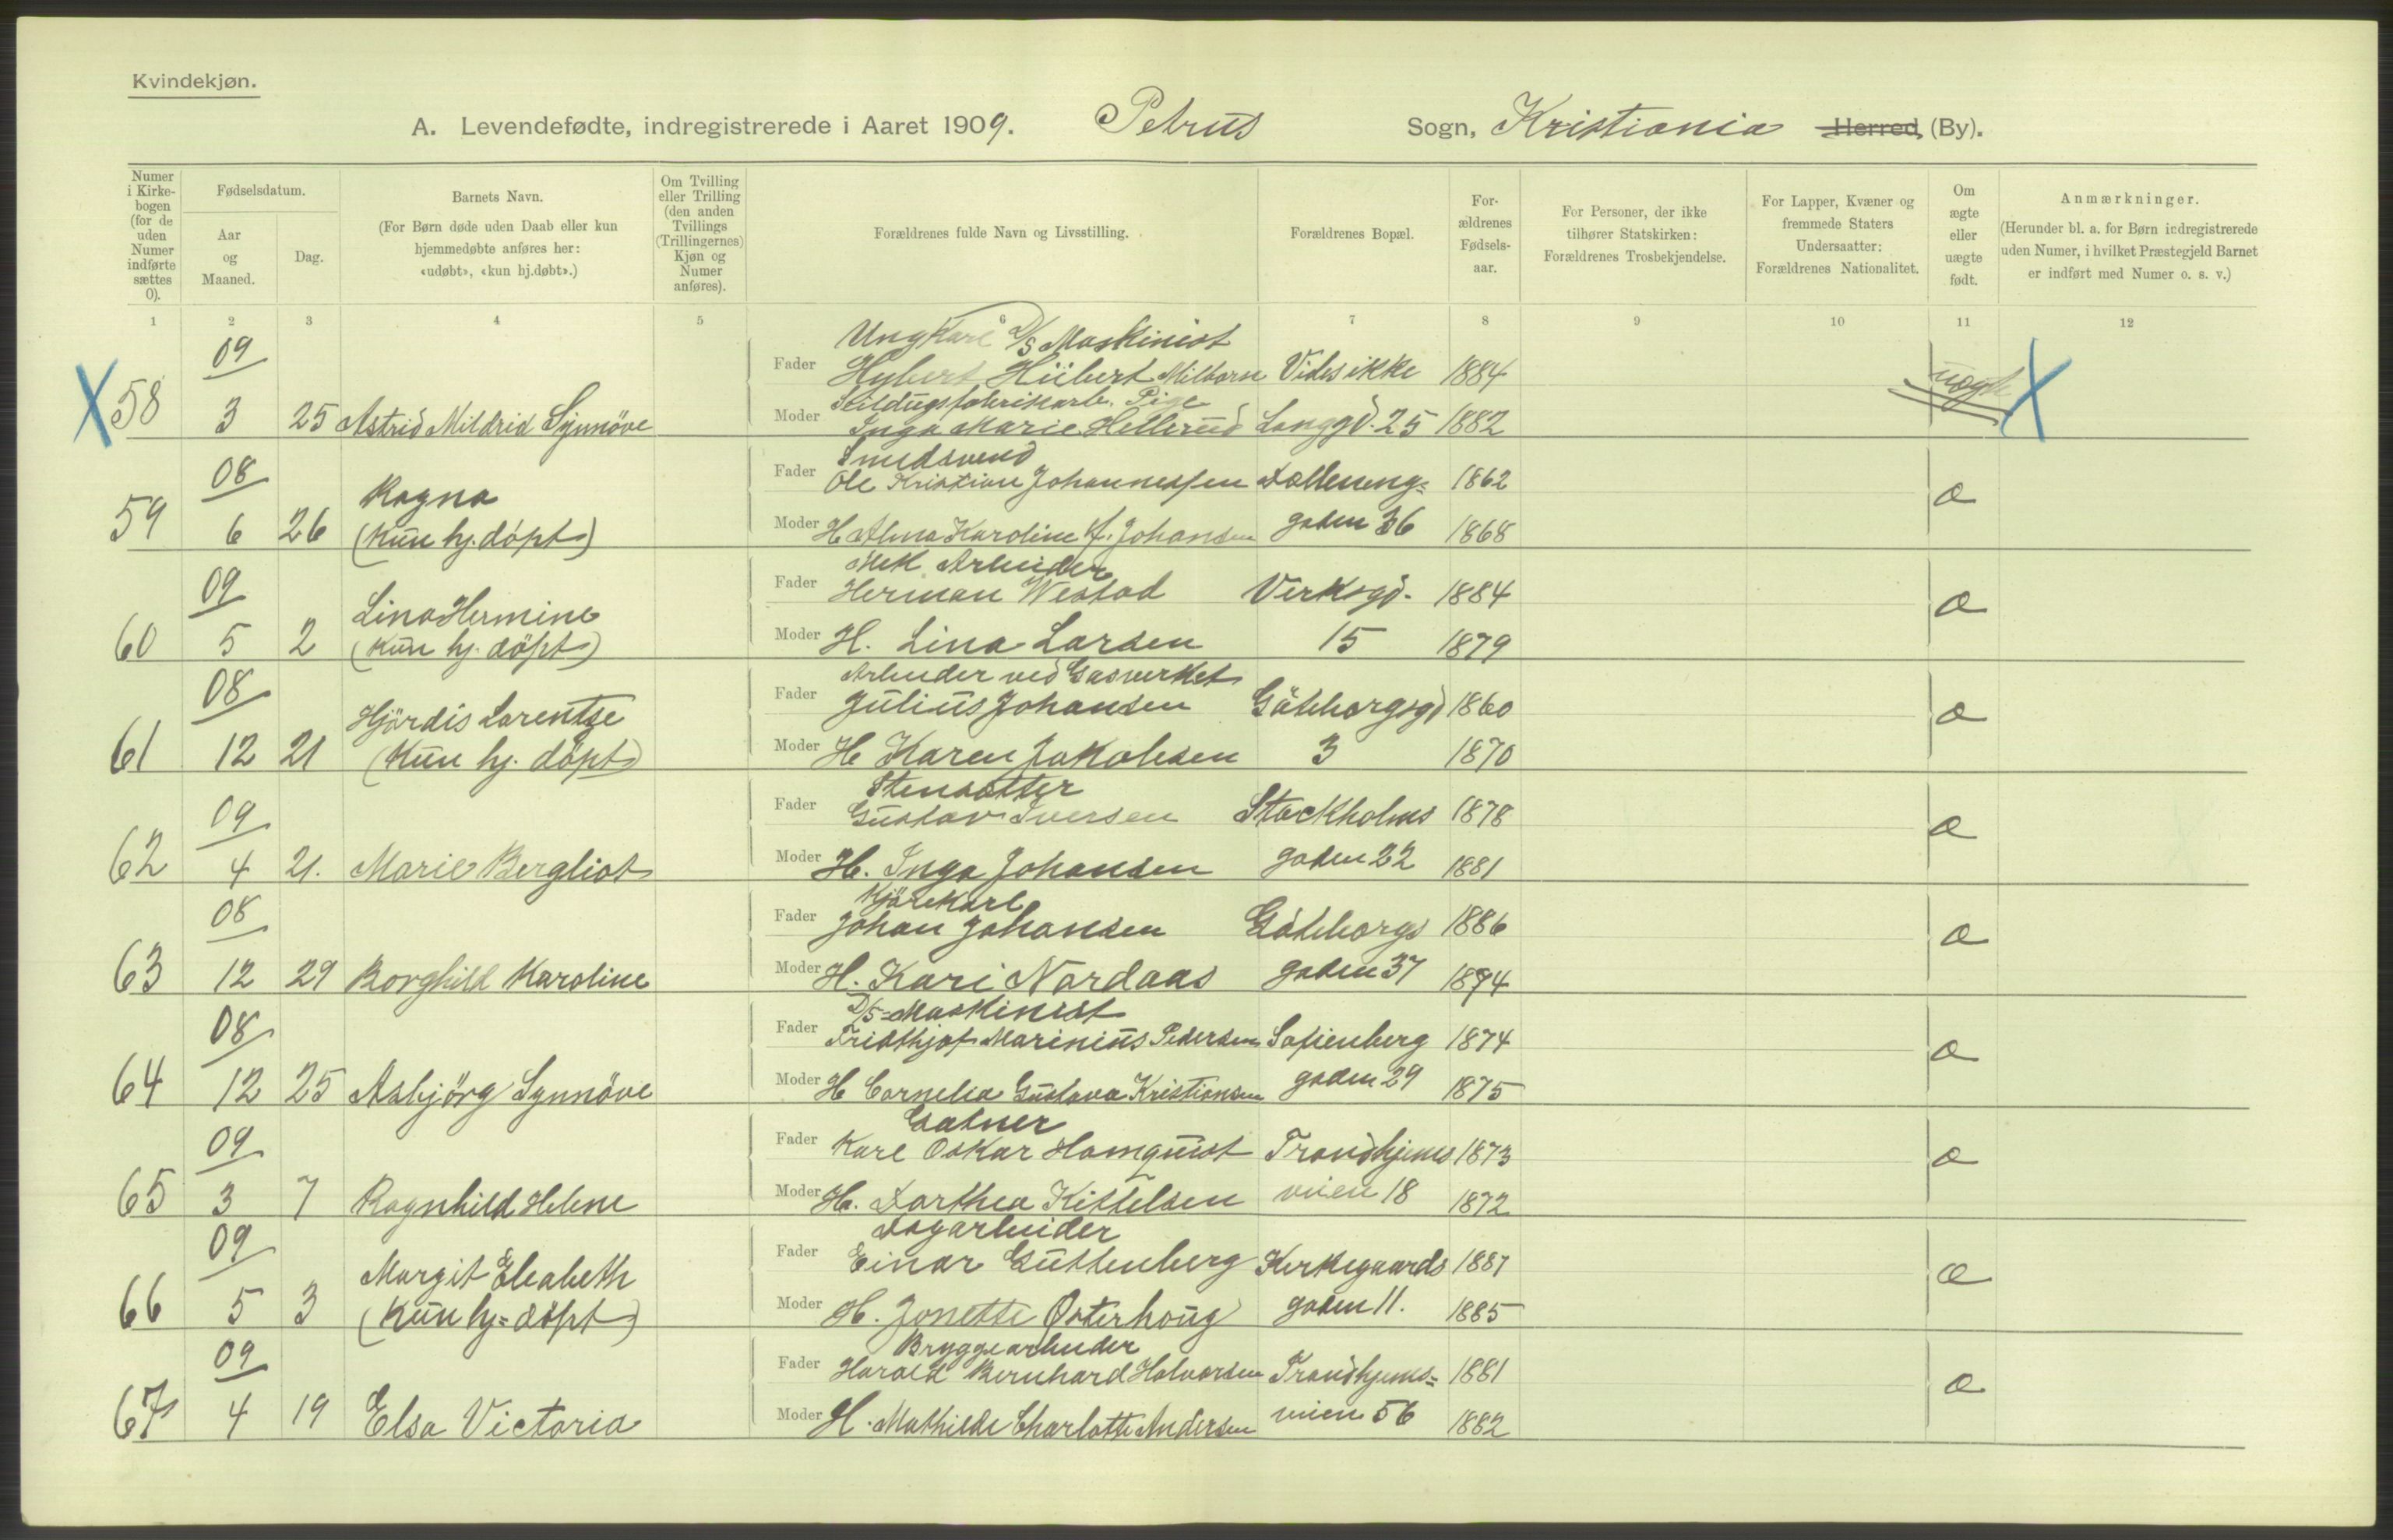 Kvindekjøn.
A. Levendefødte, indregistrerede i Aaret 1909. Petrus Sogn, Kristiania Herred, (By).
Numer i Kirkebogen (for de uden Numer indførte sættes 0).
Fødselsdatum.
Aar og Maaned.
Dag.
Barnets Navn.
(For Børn døde uden Daab eller kun hjemmedøbte anføres her: «udøbt», «kun hj.døbt».)
Om Tvilling eller Trilling (den anden Tvillings (Trillingernes) Kjøn og Numer anføres).
Forældrenes fulde Navn og Livsstilling.
Forældrenes Bopæl.
Forældrenes Fødselsaar.
For Personer, der ikke tilhører Statskirken: Forældrenes Trosbekjendelse.
For Lapper, Kvæner og fremmede Staters Undersaatter: Forældrenes Nationalitet.
Om ægte eller uægte født.
Anmærkninger.
(Herunder bl. a. for Børn indregistrerede uden Numer, i hvilket Præstegjeld Barnet er indført med Numer o. s. v.)
1 2 3 4 5 6 7 8 9 10 11 12
09
Ungkarl D/S Maskinist
Fader Hybert Hübert Milborn Vides ikke 1884 uægte X
X 58 3 25 Astrid Mildrid Synnöve
Seildugsfabrikarb. Pige
Moder Inga Marie Hellerud Langgd. 25 1882
08
Smedsvend
Fader Ole Kristian Johannessen Dælleneng= 1862 æ
59 6 26 Ragna
(kun hj. döpt)
Moder H Alma Karoline f. Johansen gaden 36 1868
09
Mek Arbeider
Fader Herman Westad Verksgd. 1884 æ
60 5 2 Lina Hermine
(kun hj. döpt)
Moder H. Lina Larsen 15 1879
08
Arbeider ved Gasverket
Fader Julius Johansen Göteborgsgd 1860 æ
61 12 21 Hjördis Lorentze
(kun hj. döpt)
Moder H Karen Jakobsen 3 1870
09
Stensætter
Fader Gustav Iversen Stockholms 1878 æ
62 4 21. Marie Bergliot
Moder H. Inga Johansen gaden 22 1881
08
Kjörekarl
Fader Johan Johansen Göteborgs 1886 æ
63 12 29 Borghild Karoline
Moder H. Kari Nordaas gaden 37
08
D/S=Maskinist
Fader Fridthjof Marinius Pedersen Sofienberg 1874 æ
64 12 25 Asbjörg Synnöve
Moder H Cornelia Gustava Kristiansen gaden 29 1875
09
Gatner
Fader Karl Oskar Hamquist Trondhjems 1873 æ
65 3 7 Ragnhild Helene
Moder H. Dorthea Kittelsen veien 18 1872
09
Dagarbeider
Fader Einar Guttenberg Kirkegaards 1887 æ
66 5 3 Margit Elisabeth
(kun hj=döpt)
Moder H. Jonette Østerhoug gaden 11. 1885
09
Bryggearbeider
Fader Harald Bernhard Halvorsen Trondhjems= 1881 æ
67 4 19 Elsa Victoria
Moder H. Mathilde Charlotte Andersen veien 56 1882